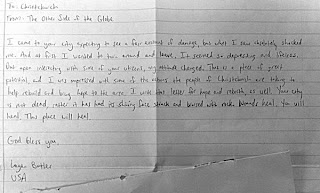 To: Christchurch
From: The Other Side of the Globe
I came to your city expecting to see a fair amount of damage, but what I saw absolutely shocked
me. And at first I wanted to turn around and leave. It seemed so depressing and lifeless.
But upon interacting with some of your citizens, my attitude changed. This is a place of great
potential, and I was impressed with some of the actions the people of Christchurch are taking to
help rebuild and bring hope to the area. I write this letter for hope and rebirth, as well. Your city
is not dead, rather it has had its shining face struck and bruised with rock. Wounds heal. You will
heal. This place will heal.
God bless you,
Butler
USA